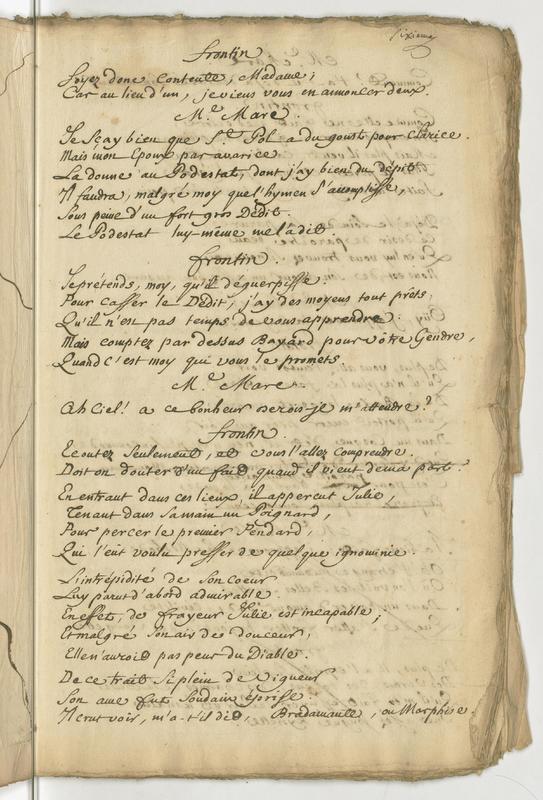 Sixieme
frontin
Soyez donc Contente, Madame,
Car au lieu d'un, je viens vous en annoncer deux.
Me. Mare.
Je Sçay bien que St. Pol a du goust pour Clarice.
Mais mon Epoux par avarice
La donne au Podestat, dont j'ay bien du dépit
Il faudra, malgré moy que l'hymen S'accomplisse,
Sous peine d'un fort gros Dédit.
Le Podestat luy-même me l'a dit.
frontin.
Je prétends, moy, qu'il déguerpisse.
Pour casser le Dédit, j'ay des moyens tout prêts,
Qu'il n'est pas temps de vous apprendre.
Mais comptez par dessus Bayard pour vôtre Gendre,
Quand c'est moy qui vous le promets
Me. Mare.
Ah Ciel! a ce bonheur devois-je m'attendre?
frontin.
Ecoutez Seulement, et vous l'allez comprendre.
Doit on douter d'un fait quand il vient de ma part?
En entrant dans ces lieux, il apperçut Julie,
Tenant dans Sa main un Poignard,
Pour percer le premier Pendard,
Qui l'eut voulu presser de quelque ignominie.
L'intrépidité de Son Coeur
Luy parut d'abord admirable.
En effet, de frayeur Julie est incapable;
Et malgré Son air de douceur,
Elle n'auroit pas peur du Diable.
De ce trait Si plein de Vigueur
Son ame fut Soudain éprise.
Il crut voir, m'a-t'il dit, Bradamante, ou Marphise.